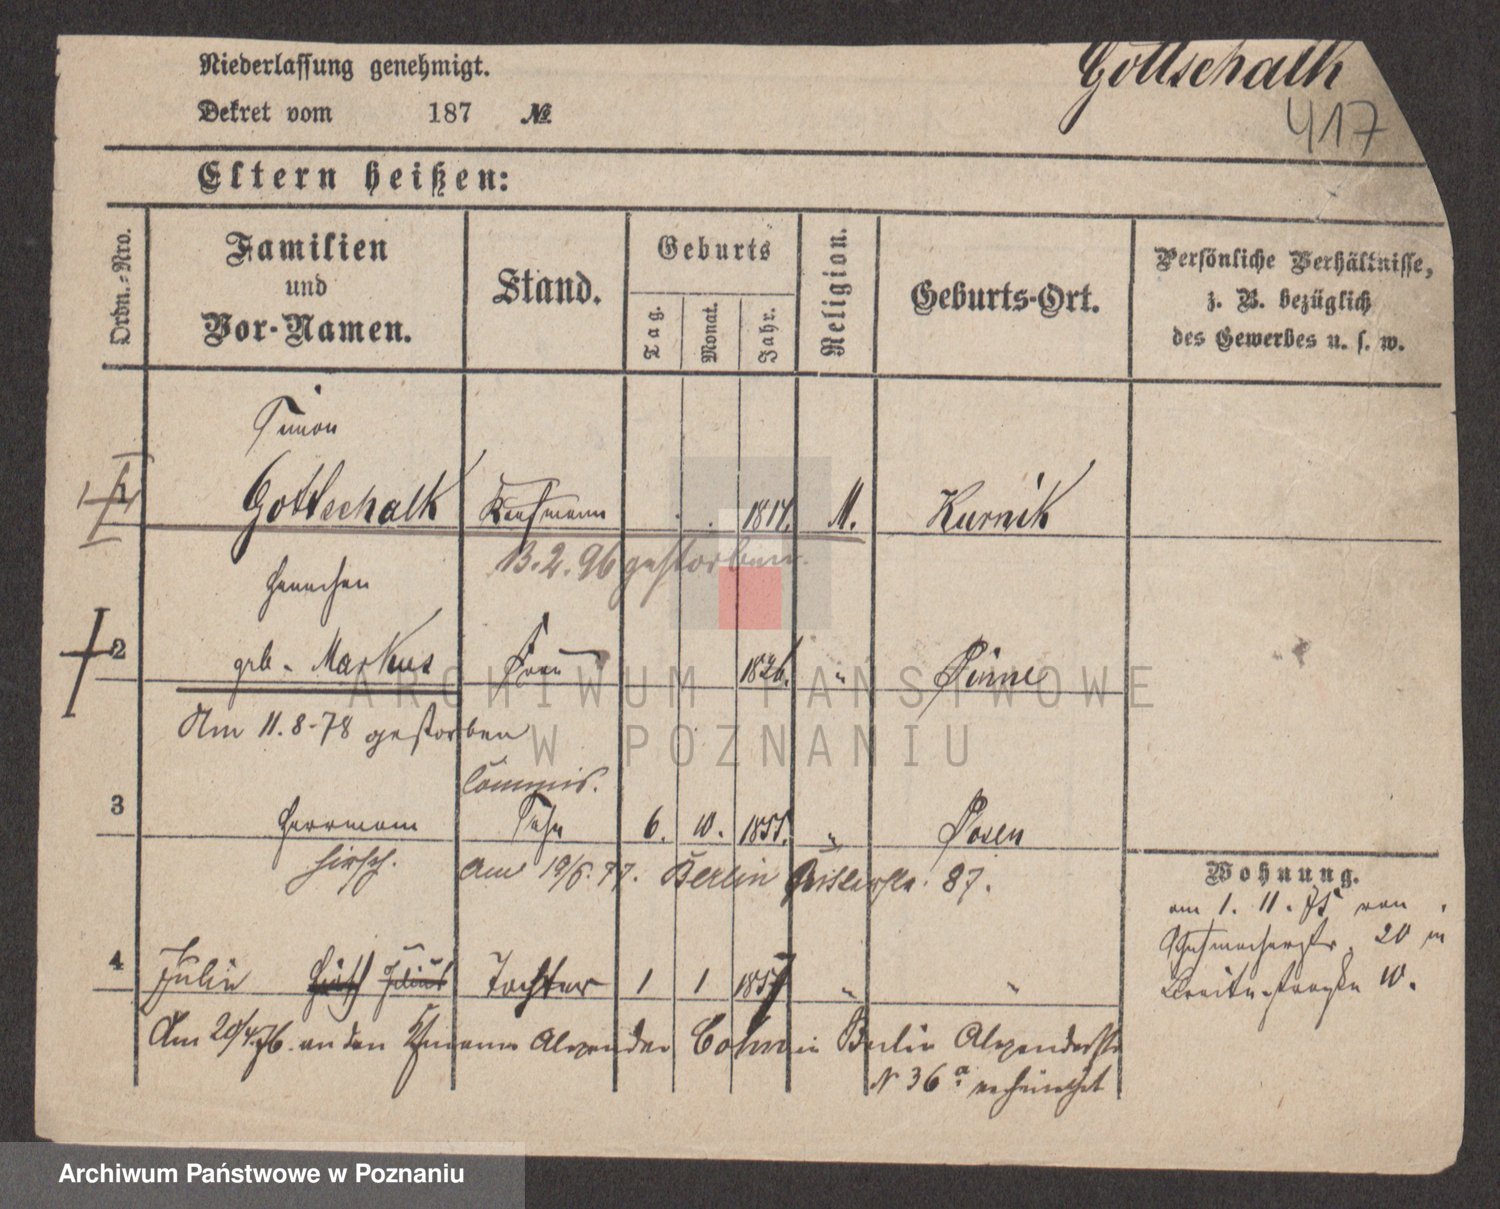 Gottschalk
417
Niederlassung genehmigt.
Dekret vom 187 №
Eltern heißen:
Ordn.-Nro.
Familien und Vor-Namen.
Stand.
Geburts
Tag.
Monat.
Jahr.
Religion.
Geburts-Ort.
Persönliche Verhältnisse,
z. B. bezüglich
des Gewerbes u. s. w.
Simon
1 Gottschalk Kaufmann . . 1817. M. Kurnik
13.2.96 gestorben.
Hannchen
2 geb. Markus Frau 1826. " Pinne
Am 11.8-78 gestorben
Commis.
3 Herrmann Sohn 6. 10. 1855. " Posen
Hirsch. Am 19/6.77. Berlin 87.
Wohnung.
am 1. 11. 75 von
Schuhmacherstr. 20 in
Breitestraße 10.
4 Julie Tochter 1 1 1857 " "
Am 20/4.76. an den Kfmann Alexander Cohn in Berlin Alexanderstr
N 36a. verheirathet
ARCHIWUM PAŃSTWOWE
W POZNANIU
Archiwum Państwowe w Poznaniu